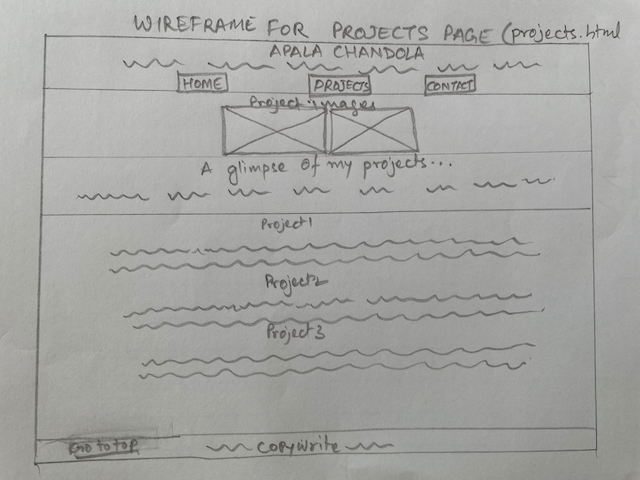 WIREFRAME FOR PROJECTS PAGE (projects.html
APALA CHANDOLA
HOME PROJECTS CONTACT
Project images
A glimpse of my projects...
Project1
Project2
Project3
Go to top COPYWrite